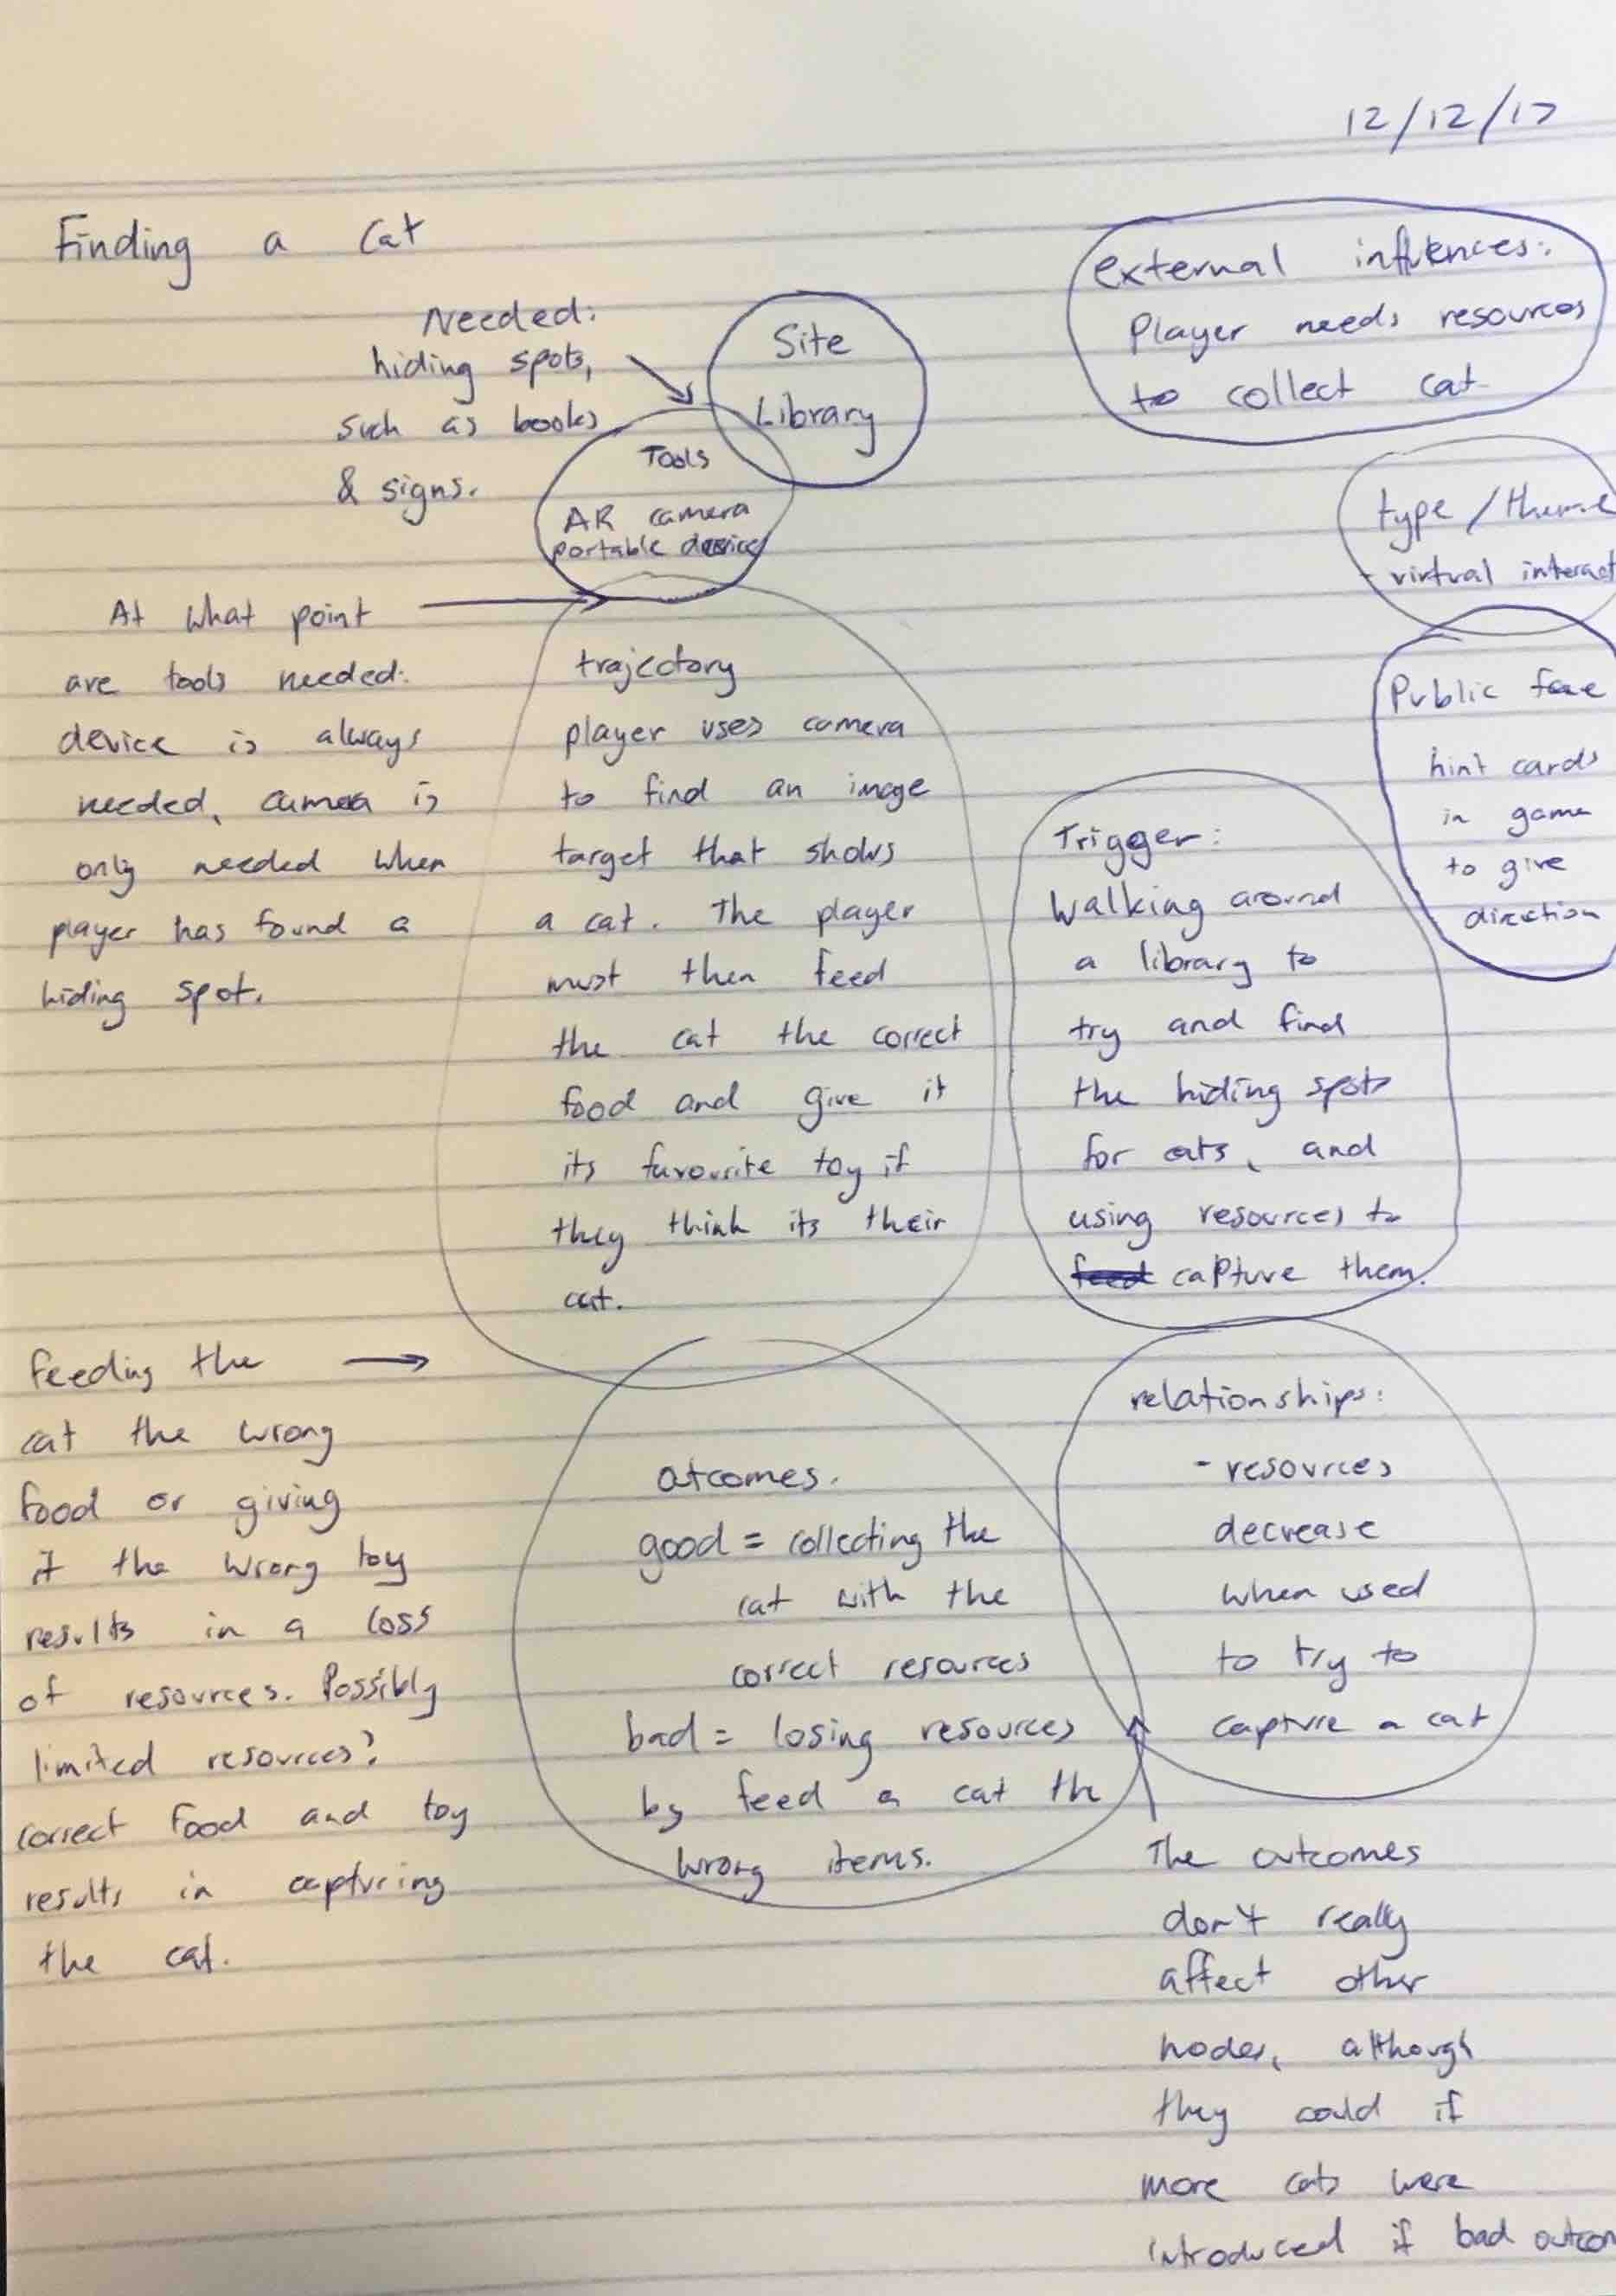 12/12/17
Finding a Cat
Needed:
hiding spots,
such as books
& signs.
Site
Library
external influences:
Player needs resources
to collect cat
Tools
AR camera
portable device
type / theme
- virtual interact
At what point
are tools needed:
device is always
needed, camera is
only needed when
player has found a
hiding spot.
trajectory
player uses camera
to find an image
target that shows
a cat. The player
must then feed
the cat the correct
food and give it
its favourite toy if
they think its their
cat.
Trigger:
Walking around
a library to
try and find
the hiding spots
for cats, and
using resources to
feed capture them.
Public face
hint cards
in game
to give
direction
Feeding the
cat the wrong
food or giving
it the wrong toy
results in a loss
of resources. Possibly
limited resources?
correct food and toy
results in capturing
the cat.
outcomes.
good = collecting the
cat with the
correct resources
bad = losing resources
by feed a cat the
wrong items.
relationships:
- resources
decrease
when used
to try to
capture a cat
The outcomes
don't really
affect other
nodes, although
they could if
more cats were
introduced if bad outcom